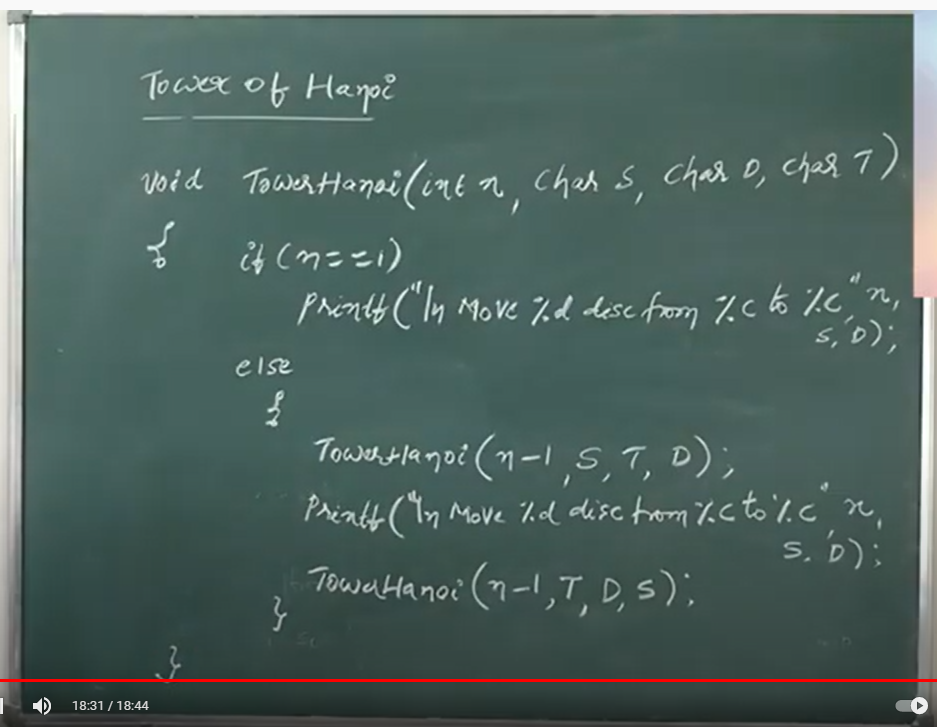 Tower of Hanoi
void TowerHanoi(int n, char S, char D, char T)
{ if (n==1)
printf("\n Move %d disc from %c to %c", n,
S, D);
else
{
TowerHanoi(n-1, S, T, D);
Printf("\n Move %d disc from %c to %c", n,
S, D);
TowerHanoi(n-1, T, D, S);
}
}
18:31 / 18:44